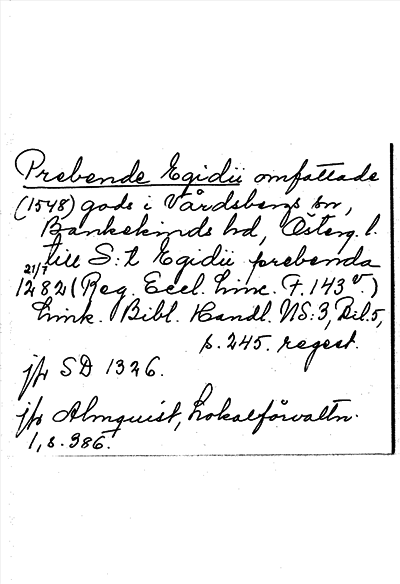 Prebende Egidii omfattade
(1548) gods i Vårdsbergs sn,
Bankekinds hd, Österg. l.
till S:t Egidii prebenda
21/7
1282 (Reg. Eccl. Linc. F. 143 v.)
Link. Bibl. Handl. NS:3, Bil. 5,
s. 245. regest.
jfr SD 1326.
jfr Almquist, Lokalförvaltn.
1, s. 386.